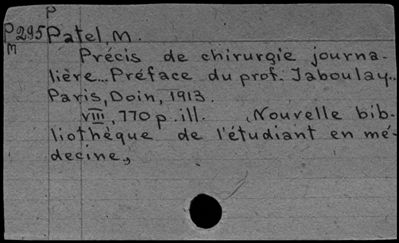 P
P295 Patel, M.
M
Précis de chirurgie journa-
lière... Préface du prof. Jaboulay..
Paris, Doin, 1913.
VIII, 770 p. ill. Nouvelle bib-
liothèque de l'étudiant en mé-
decine.,